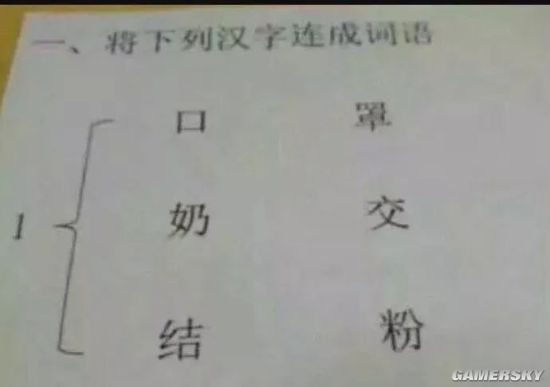 一、将下列汉字连成词语
口 罩
1 奶 交
结 粉
GAMERSKY